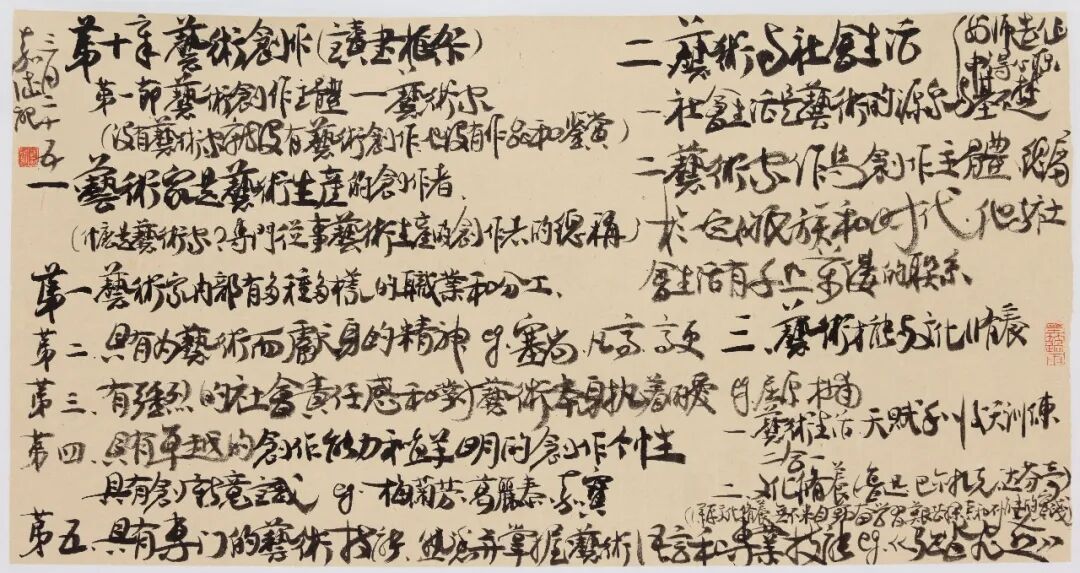 第十章 藝術創作(讀書框架)
第一節 藝術創作主體一藝術家
(沒有藝術家就沒有藝術創作也沒有作品和鑒賞)
一 藝術家是藝術生産的創作者.
(什麽是藝術家?專門從事藝術生産的創作者的總稱)
第一 藝術家内部有多種多樣的職業和分工、
第二、具有为藝術而獻身的精神 eg.塞尚.凡高.高更
第三、有强烈的社會責任感和對藝術本身执着的愛 eg.屈原
第四、具有卓越的創作能力和鮮明的創作个性
具有創新意識 eg.梅蘭芳
第五、具有專门的藝術技能、熟悉并掌握藝術语言和專業技能 eg.
二 藝術与社會生活
外师造化
中得心源
一 社會生活是藝術的源泉与基礎
二 藝術家作爲創作主體
於一定的民族和时代.他与社
會生活有千丝萬縷的联系.
三、藝術才能与文化脩養
一 藝術生活 天赋 後天訓練
二合一
二、文化脩養(魯迅 巴尔扎克 达芬奇)
三月二十五